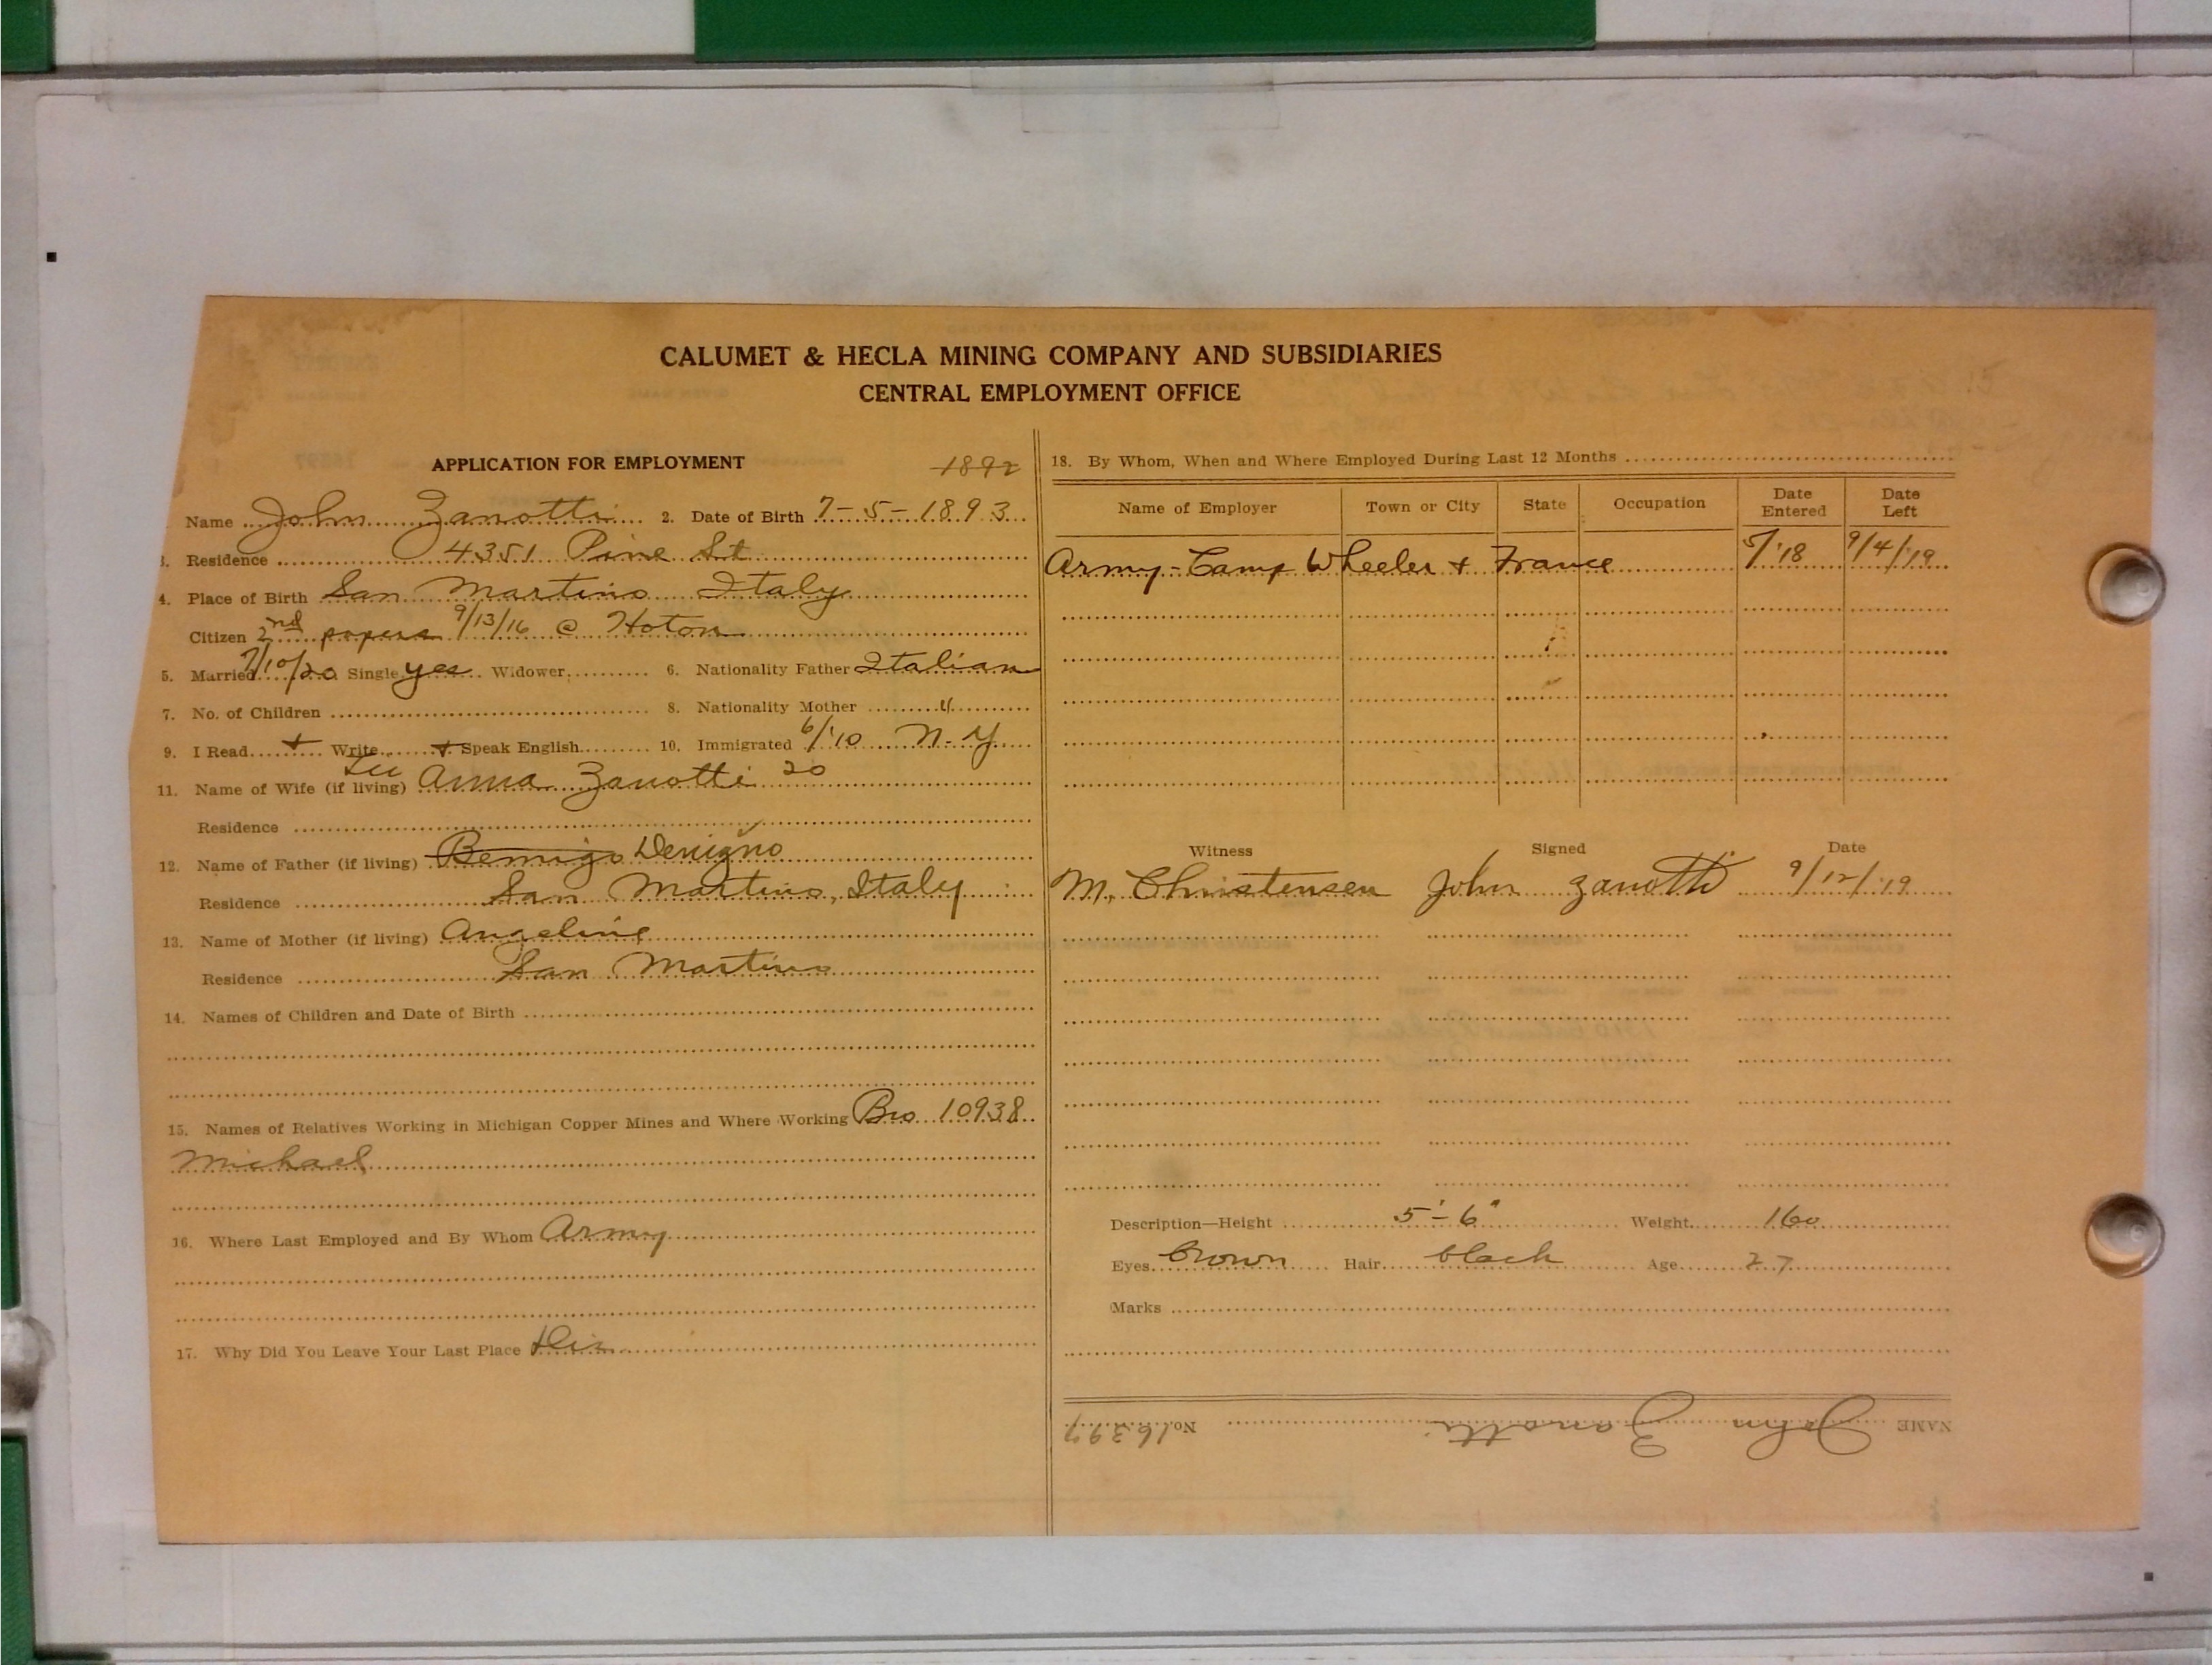 CALUMET & HECLA MINING COMPANY AND SUBSIDIARIES
CENTRAL EMPLOYMENT OFFICE
APPLICATION FOR EMPLOYMENT
1892
Name John Zanotti 2. Date of Birth 7-5-1893
3. Residence 4351 Pine St
4. Place of Birth San Martino Italy
Citizen 2nd papers 9/13/16 @ Hoton
5. Married 7/10/20 Single yes Widower 6. Nationality Father Italian
7. No. of Children 8. Nationality Mother "
9. I Read + Write + Speak English 10. Immigrated 6/'10 N-Y
11. Name of Wife (if living) Anna Zanotti 20
Residence
12. Name of Father (if living) Bemigo Denigno
Residence San Martino, Italy
13. Name of Mother (if living) Angeline
Residence San Martino
14. Names of Children and Date of Birth
15. Names of Relatives Working in Michigan Copper Mines and Where Working Bro 10938
Michael
16. Where Last Employed and By Whom Army
17. Why Did You Leave Your Last Place
18. By Whom, When and Where Employed During Last 12 Months
Name of Employer Town or City State Occupation Date Entered Date Left
Army-Camp Wheeler + France 5/'18 9/4/'19
Witness Signed Date
M. Christensen John Zanotti 9/12/'19
Description—Height 5'-6" Weight 160
Eyes brown Hair black Age 27
Marks
NAME John Zanotti No. 16397